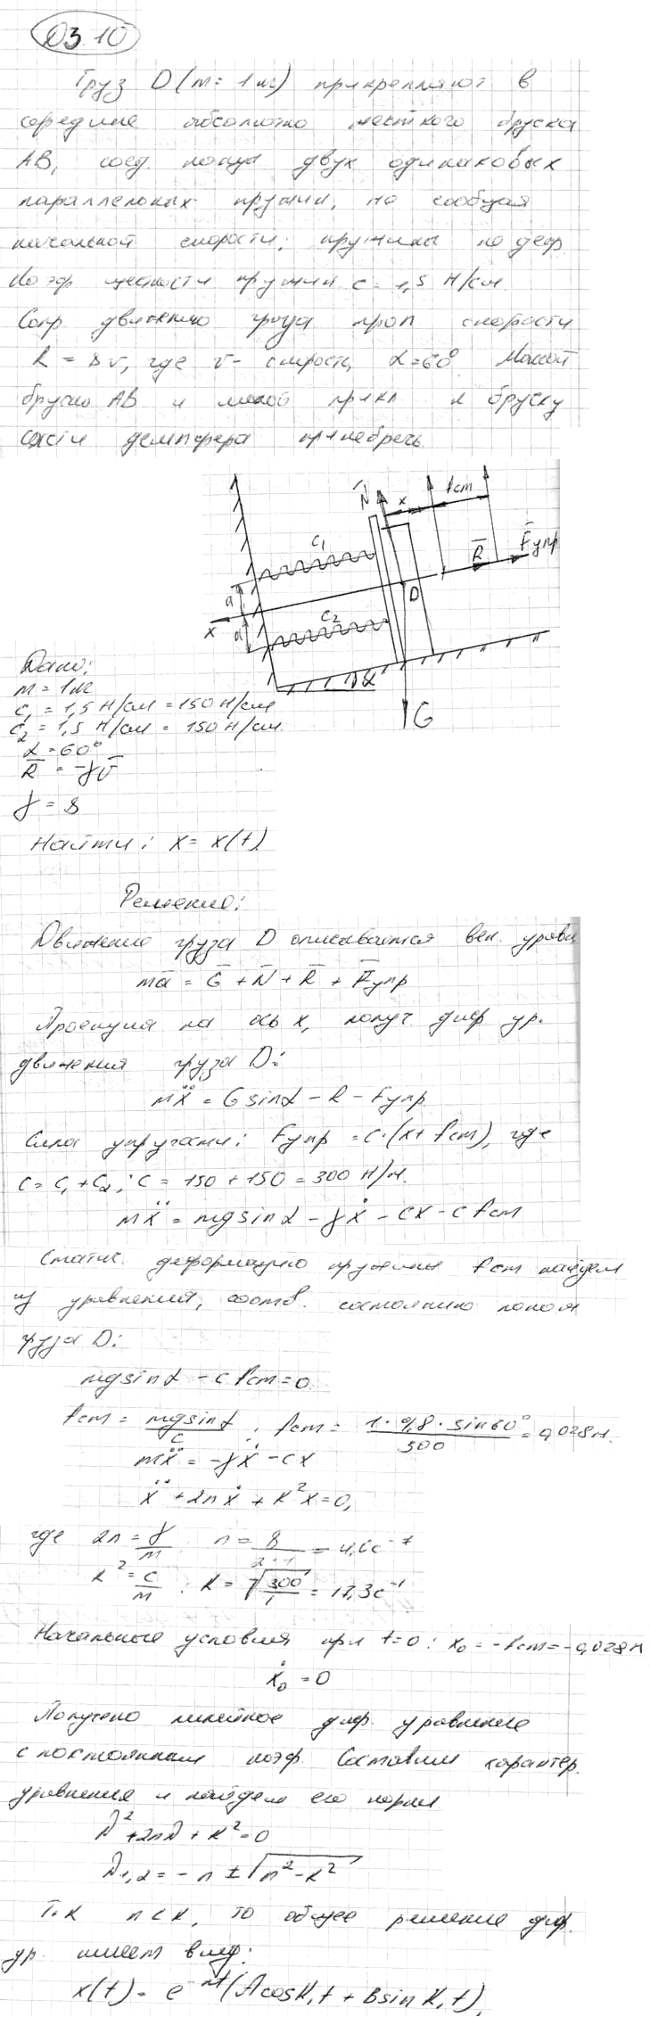 Д3 10
Груз D (m = 1 кг) прикрепляют в
середине абсолютно жесткого бруска
АВ, соед. концы двух одинаковых
параллельных пружин, не сообщая
начальной скорости; пружины не деф.
Коэф. жесткости пружин c = 1,5 Н/см.
Сопр. движению груза проп. скорости
R = 8v, где v - скорость, α = 60°. Массой
бруска АВ и массой прикл. к бруску
части демпфера пренебречь.
N x fст
c₁ R Fупр
a D
x a c₂
α
G
Дано:
m = 1 кг
c₁ = 1,5 Н/см = 150 Н/см
c₂ = 1,5 Н/см = 150 Н/см.
α = 60°
R = -γv
γ = 8
Найти: x = x(t)
Решение:
Движение груза D описывается век. уравн.
ma = G + N + R + Fупр
Проецируя на ось x, получ. диф. ур.
движения груза D:
mẍ = G sinα - R - Fупр
Сила упругости: Fупр = c·(x + fст), где
c = c₁ + c₂; c = 150 + 150 = 300 Н/м.
mẍ = mg sinα - γẋ - cx - c fст
Статич. деформацию пружины fст найдем
из уравнения, соотв. состоянию покоя
груза D:
mg sinα - c fст = 0
fст = mg sinα / c ; fст = 1 · 9,8 · sin 60° / 300 = 0,028 м.
mẍ = -γẋ - cx
ẍ + 2nẋ + k²x = 0,
где 2n = γ/m n = 8 / 2·1 = 4,0 c⁻¹
k² = c/m ; k = √300/1 = 17,3 c⁻¹
Начальные условия при t=0: x₀ = -fст = -0,028 м
ẋ₀ = 0
Получено линейное диф. уравнение
с постоянным коэф. Составим характер.
уравнение и найдем его корни
λ² + 2nλ + k² = 0
λ₁,₂ = -n ± √n² - k²
Т.к. n < k, то общее решение диф.
ур. имеет вид:
x(t) = e⁻ⁿᵗ (A cos k₁t + B sin k₁t),